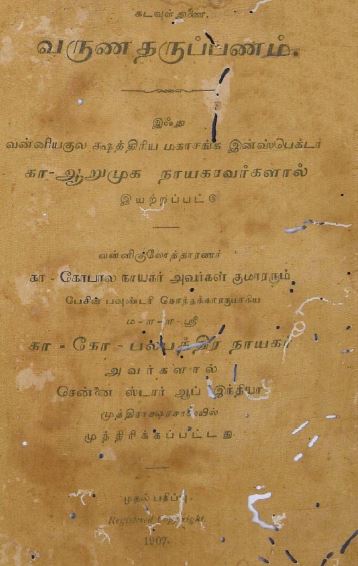 கடவுள் துணை.
வருண தருப்பணம்.
இஃது
வன்னியகுல க்ஷத்திரிய மகாசங்க இன்ஸ்பெக்டர்
கா-ஆறுமுக நாயகரவர்களால்
இயற்றப்பட்டு
வன்னிகுலோத்தாரணர்
கா - கோபால நாயகர் அவர்கள் குமாரரும்
பேசின் பவுண்டரி
ம-ள-ள-ஸ்ரீ
கா - கோ - பலபத்திர நாயகர்
அவர்களால்
சென்னை ஸ்டார் ஆப் இந்தியா
முத்திராக்ஷரசாலையில்
முத்திரிக்கப்பட்டது.
முதல் பதிப்பு.
Registered Copyright
1907.